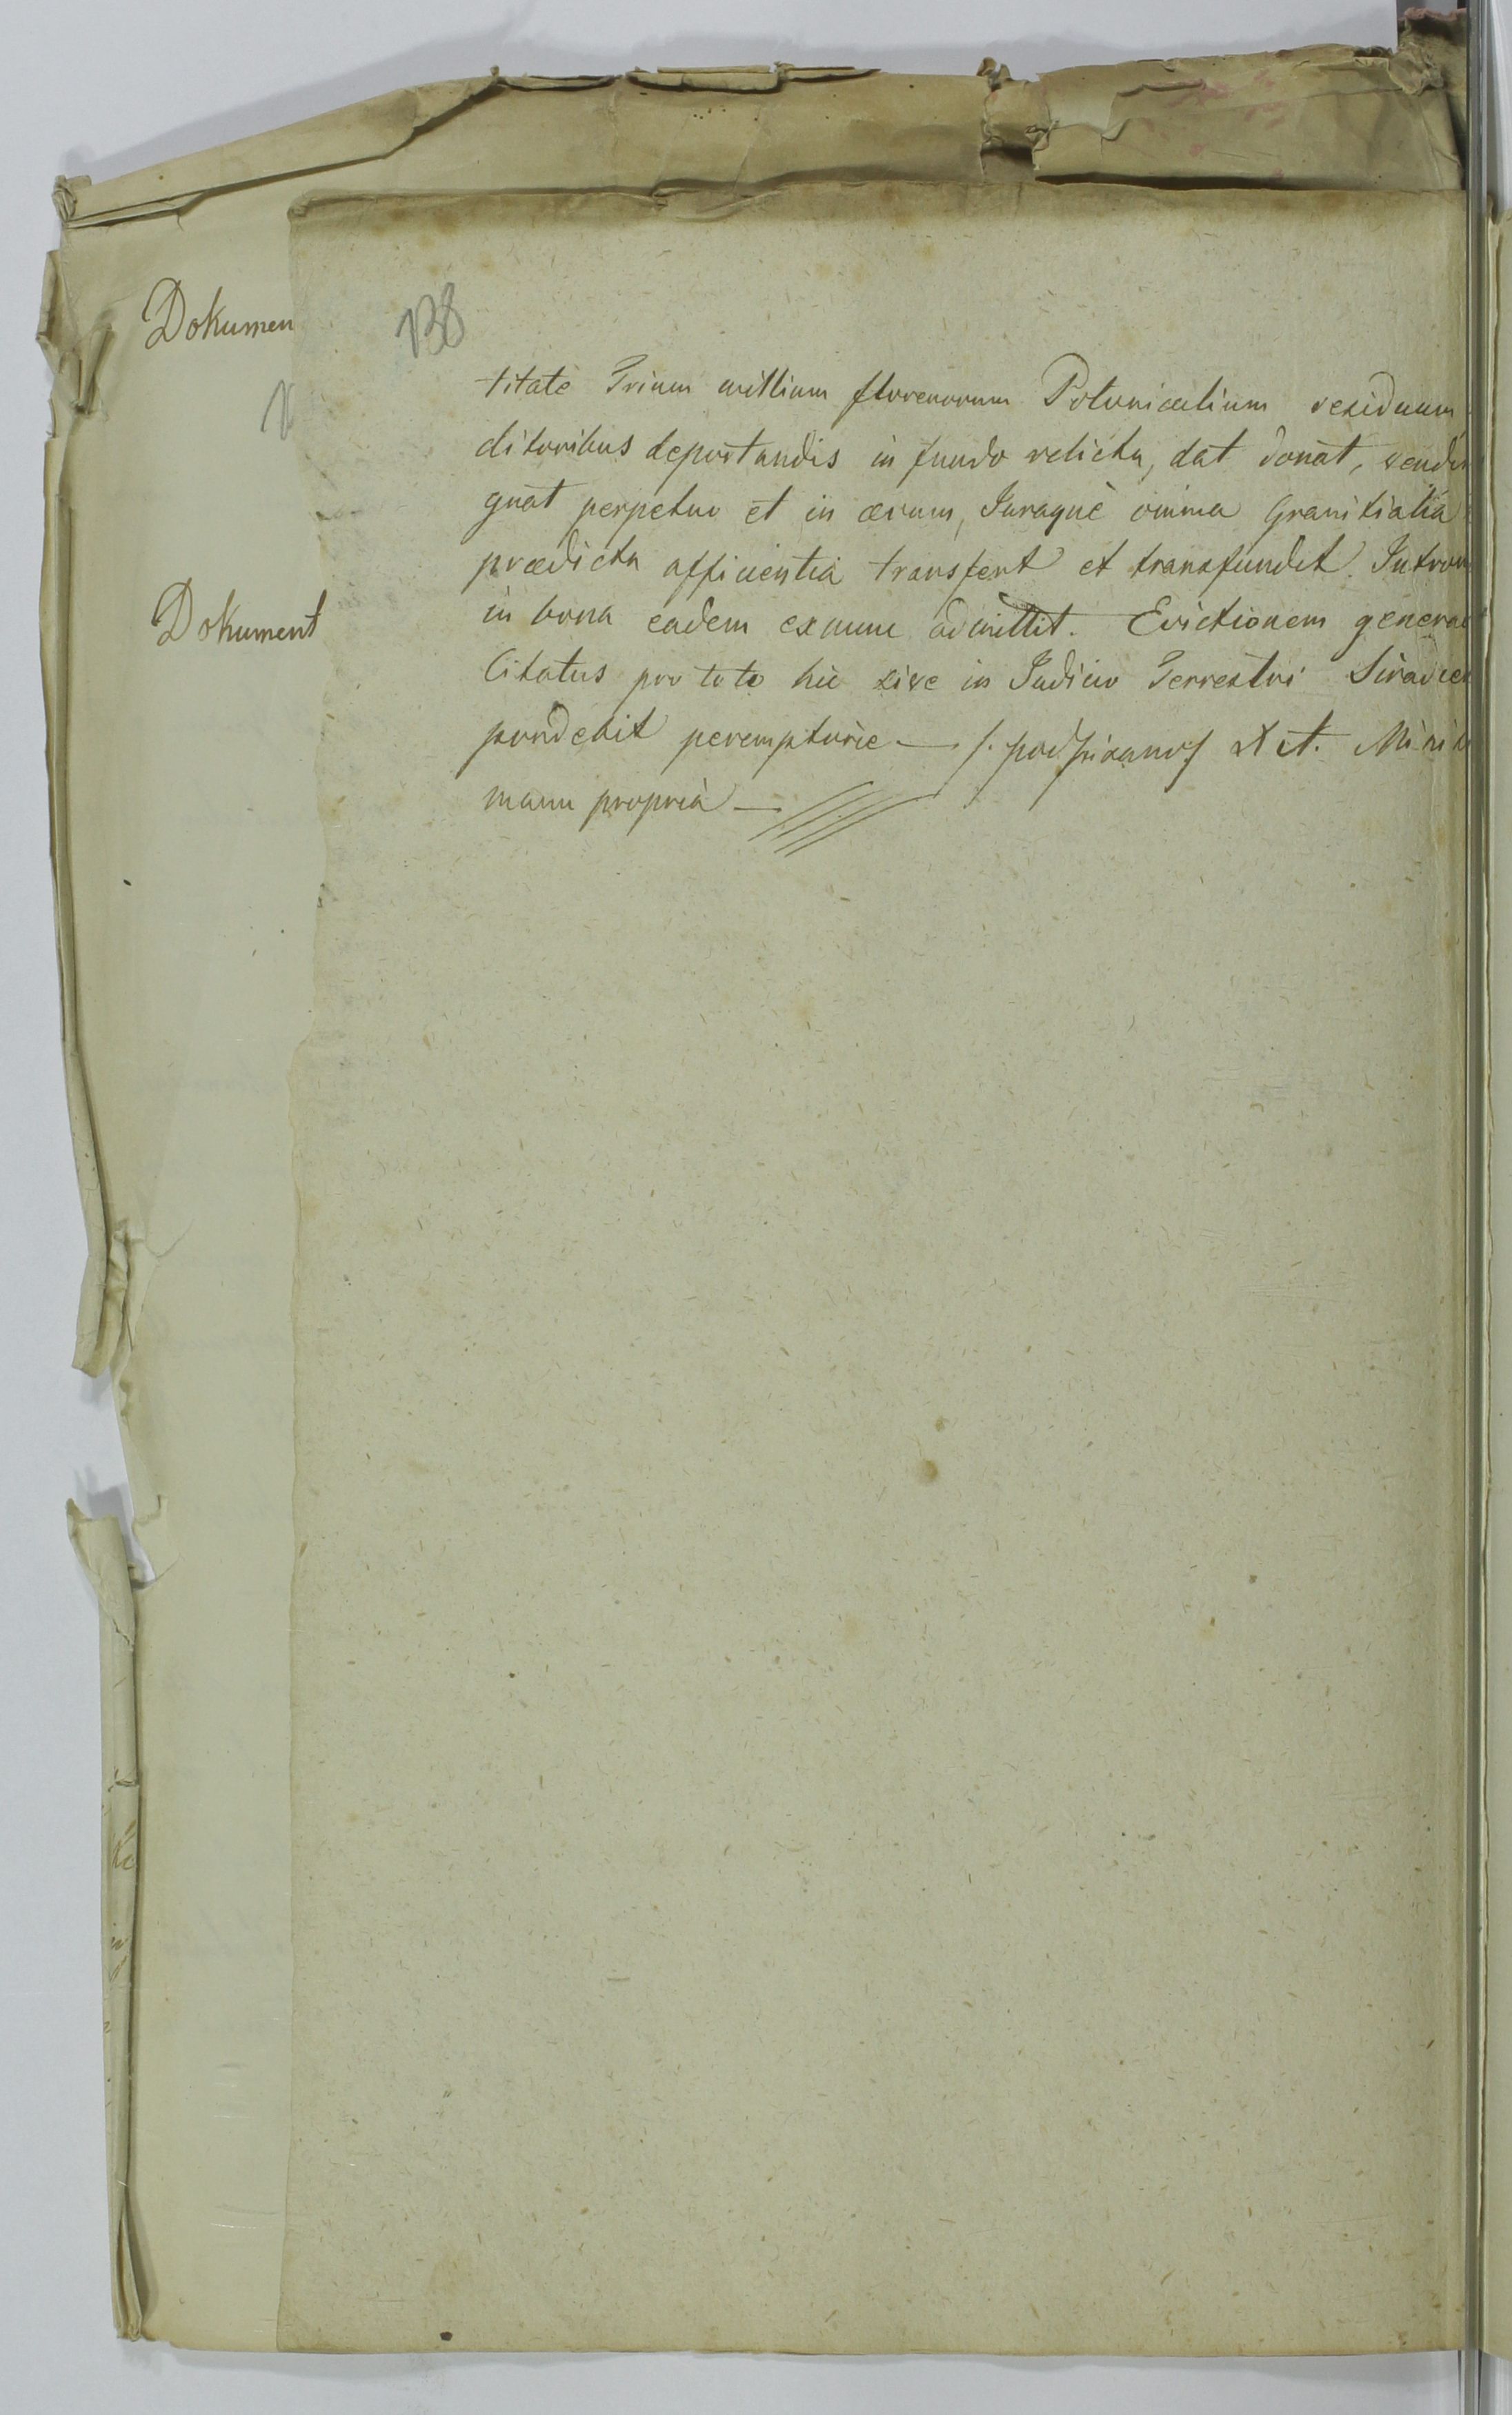 Dokumen
Dokument
138
titate Trium millium florenorum Polonicalium residuum
ditoribus deportandis in fundo relicta, dat donat, vendi
gnat perpetuo et in ævum, Juraque omnia Granitialia
prædicta afficientia transfert et transfundit. Introm
in bona eadem exnunc admittit. Evictionem general
Citatus pro toto hic sive in Judicio Terrestri Siradien
pondebit peremptorie — /. podpisano/
manu propria —